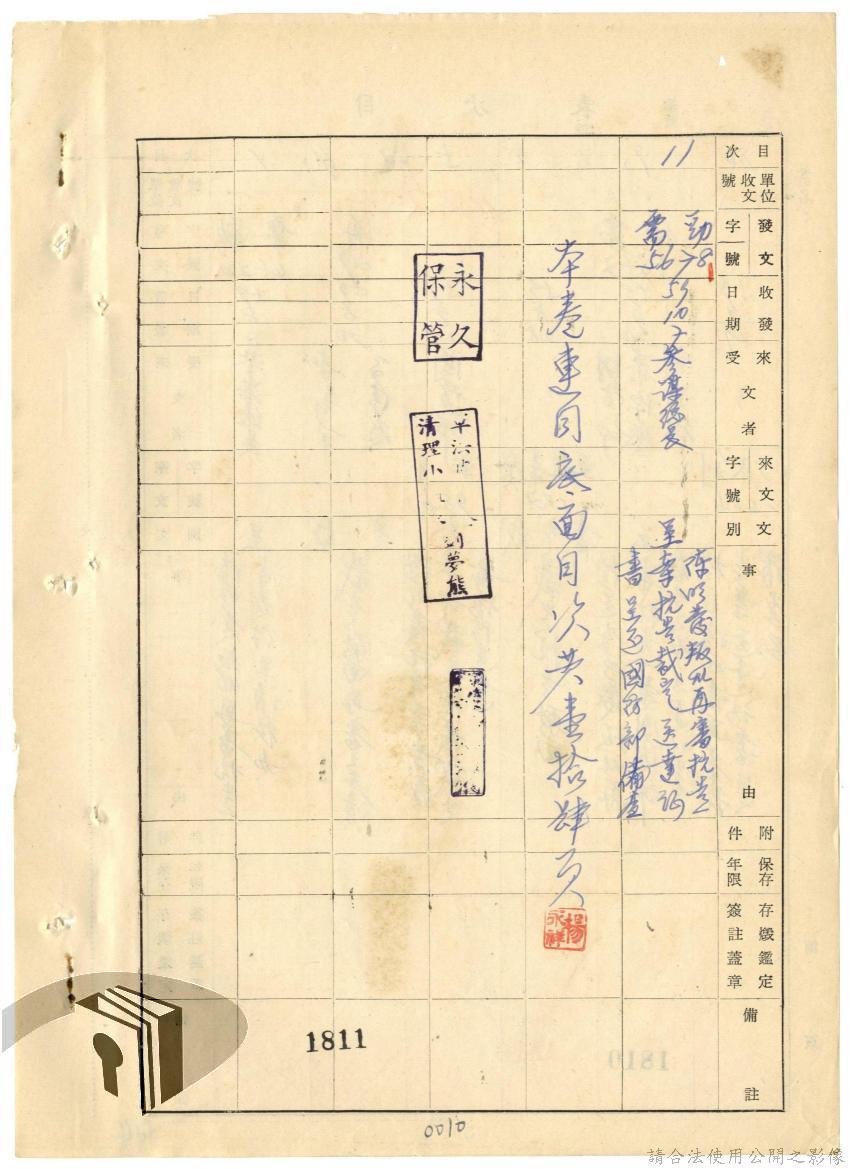 目次
單位收文號
發文字號
收發日期
來文受者
來文字號
文別
事由
附件
保存年限
存燬鑑定簽註蓋章
備註
11
勁需
5678
56 10
參謀總長
陳 叛亂再審抗告
呈奉抗告裁定送達証
書呈送國防部備查
本卷連同底面目次共壹拾肆頁
楊永祥
永久保管
清理小
劉夢熊
1811
0010
請合法使用公開之影像